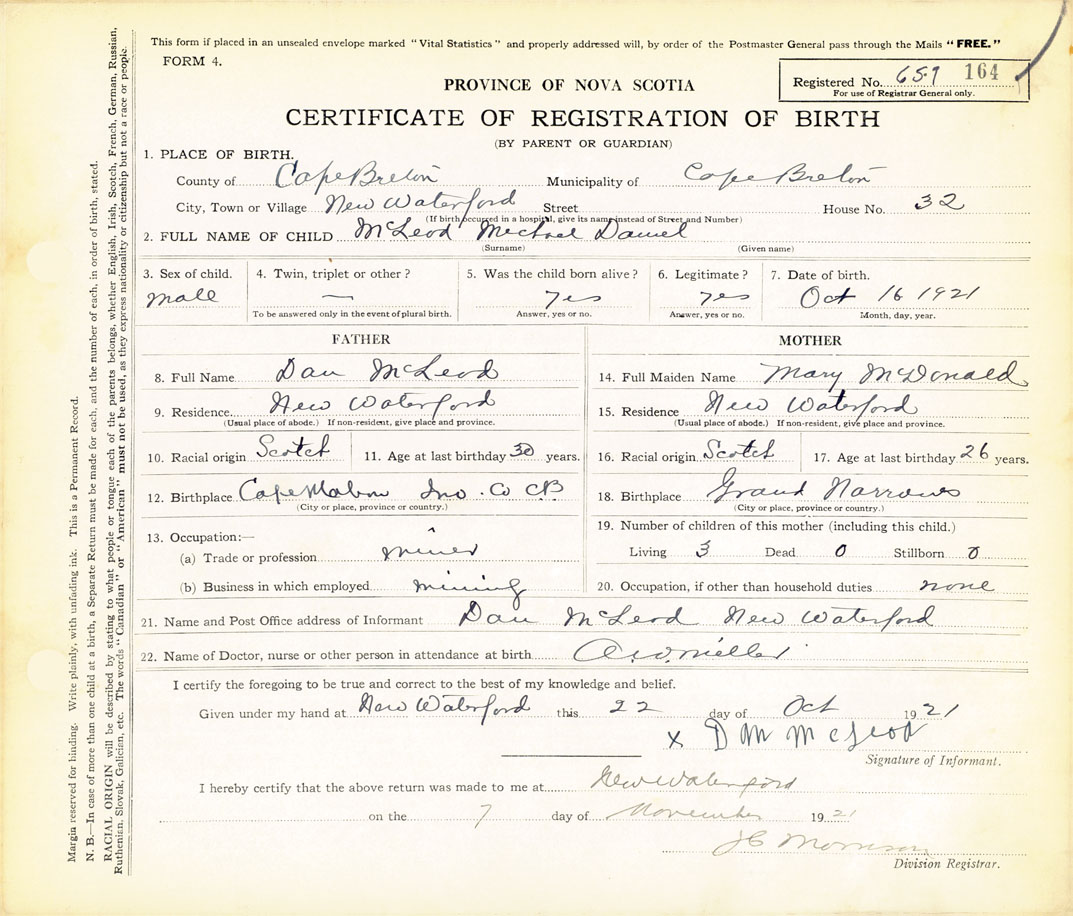 This form if placed in an unsealed envelope marked "Vital Statistics" and properly addressed will, by order of the Postmaster General pass through the Mails "FREE."
FORM 4.
Registered No. 659 164
For use of Registrar General only.
PROVINCE OF NOVA SCOTIA
CERTIFICATE OF REGISTRATION OF BIRTH
(BY PARENT OR GUARDIAN)
1. PLACE OF BIRTH.
County of Cape Breton Municipality of Cape Breton
City, Town or Village New Waterford Street House No. 32
(If birth occurred in a hospital, give its name instead of Street and Number)
2. FULL NAME OF CHILD McLeod Michael Daniel
(Surname) (Given name)
3. Sex of child. 4. Twin, triplet or other? 5. Was the child born alive? 6. Legitimate? 7. Date of birth.
male — yes yes Oct 16 1921
To be answered only in the event of plural birth. Answer, yes or no. Answer, yes or no. Month, day, year.
FATHER MOTHER
8. Full Name Dan McLeod 14. Full Maiden Name Mary McDonald
9. Residence New Waterford 15. Residence New Waterford
(Usual place of abode.) If non-resident, give place and province. (Usual place of abode.) If non-resident, give place and province.
10. Racial origin Scotch 11. Age at last birthday 30 years. 16. Racial origin Scotch 17. Age at last birthday 26 years.
12. Birthplace Cape Mabou Inv. Co CB 18. Birthplace Grand Narrows
(City or place, province or country.) (City or place, province or country.)
13. Occupation:— 19. Number of children of this mother (including this child.)
(a) Trade or profession miner Living 3 Dead 0 Stillborn 0
(b) Business in which employed mining 20. Occupation, if other than household duties none
21. Name and Post Office address of Informant Dan McLeod New Waterford
22. Name of Doctor, nurse or other person in attendance at birth Miller
I certify the foregoing to be true and correct to the best of my knowledge and belief.
Given under my hand at New Waterford this 22 day of Oct 1921
x D M McLeod
Signature of Informant.
I hereby certify that the above return was made to me at New Waterford
on the 7 day of November 1921
Morrison
Division Registrar.
Margin reserved for binding. Write plainly, with unfading ink. This is a Permanent Record.
N. B.—In case of more than one child at a birth, a Separate Return must be made for each, and the number of each, in order of birth, stated.
RACIAL ORIGIN will be described by stating to what people or tongue each of the parents belongs, whether English, Irish, Scotch, French, German, Russian,
Ruthenian, Slovak, Galician, etc. The words "Canadian" or "American" must not be used, as they express nationality or citizenship but not a race or people.